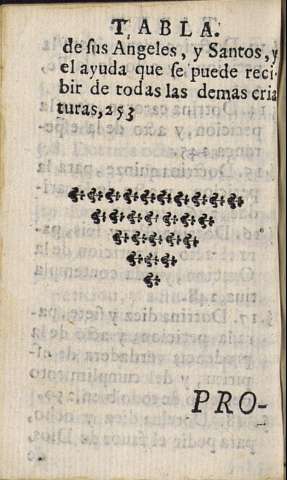 TABLA.
de sus Angeles, y Santos, y
el ayuda que se puede reci-
bir de todas las demas cria
turas, 253
PRO-